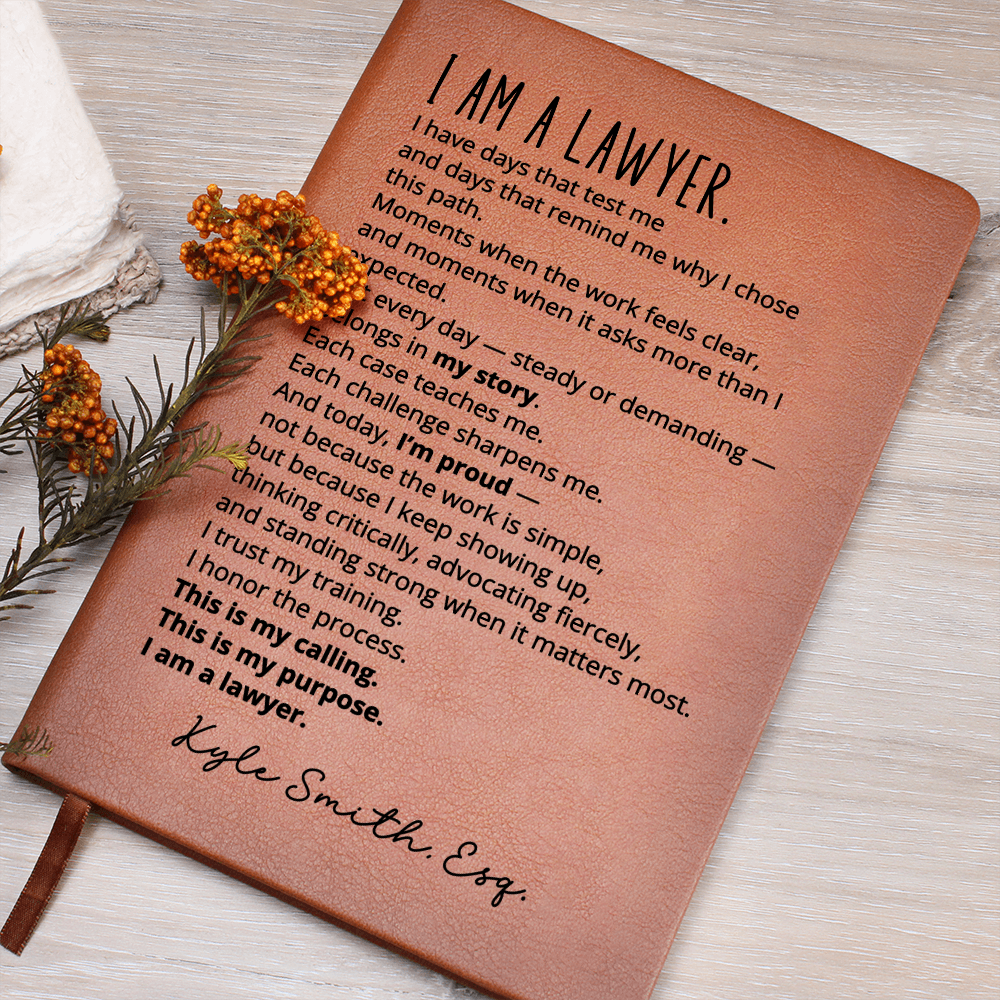 I AM A LAWYER.
I have days that test me
and days that remind me why I chose
this path.
Moments when the work feels clear,
and moments when it asks more than I
expected.
every day — steady or demanding —
belongs in my story.
Each case teaches me.
Each challenge sharpens me.
And today, I'm proud —
not because the work is simple,
but because I keep showing up,
thinking critically, advocating fiercely,
and standing strong when it matters most.
I trust my training.
I honor the process.
This is my calling.
This is my purpose.
I am a lawyer.
Kyle Smith, Esq.